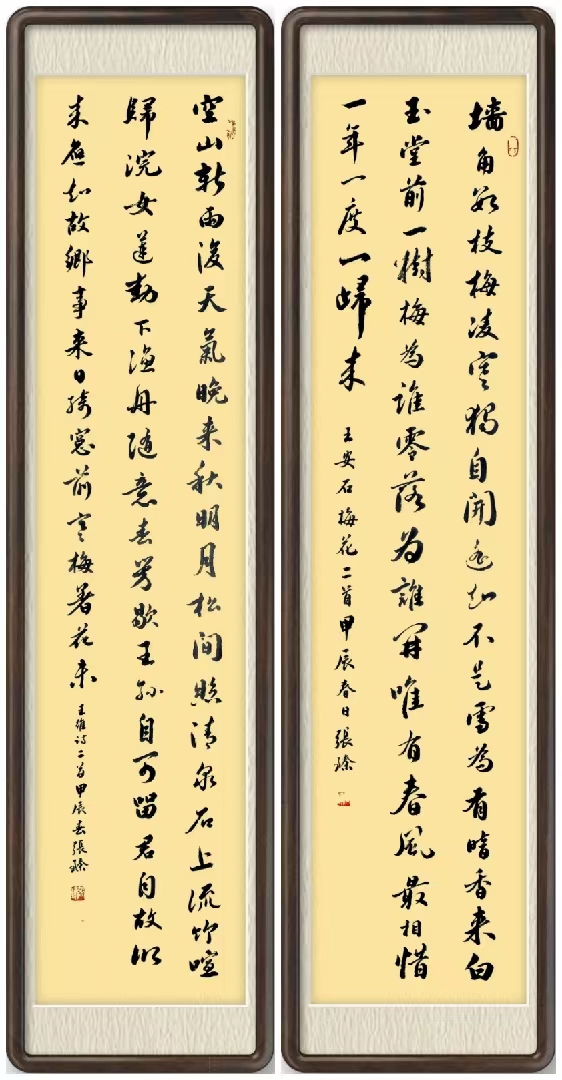 墙角数枝梅凌寒独自開遥知不是雪為有暗香来白
玉堂前一樹梅為谁零落为誰開唯有春風最相惜
一年一度一歸来 王安石梅花二首甲辰春日張
空山新雨後天氣晚来秋明月松间照清泉石上流竹喧
歸浣女蓮動下渔舟随意春芳歇王孙自可留君自故鄉
来應知故鄉事来日绮窓前寒梅著花未 王維诗二首甲辰春張